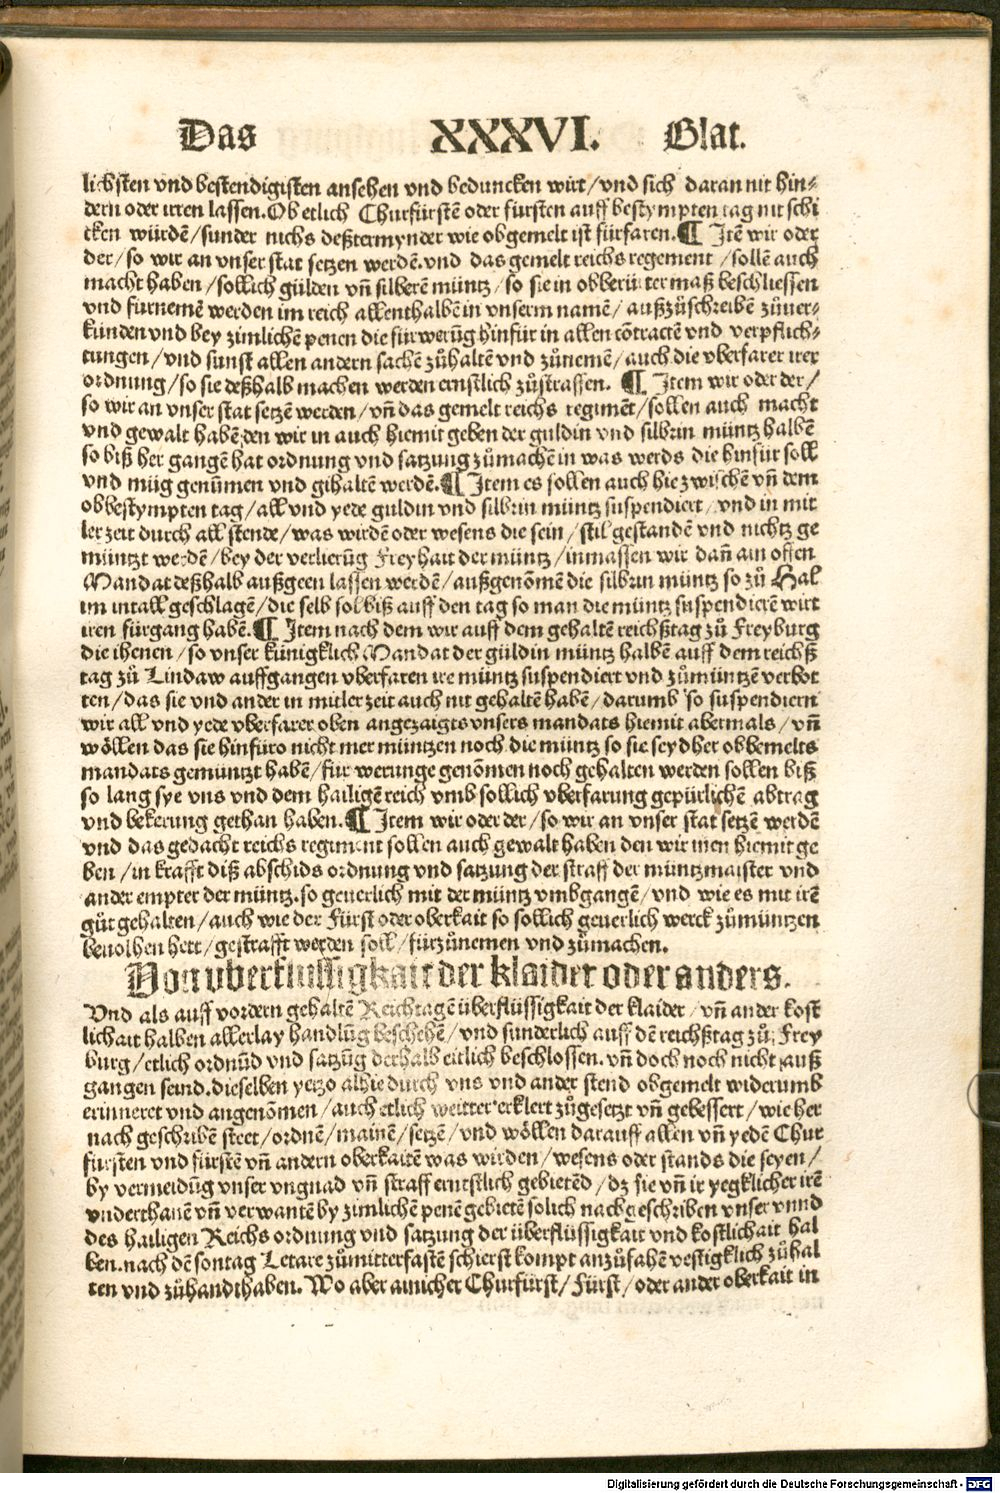 Das XXXVI. Blat.
liebsten vnd bestendigisten ansehen vnd beduncken wirt/vnd sich daran nit hin⸗
dern oder irren lassen. Ob etlich Churfürstē oder fürsten auff bestympten tag nit schi
cken würdē/sunder nichs deßtermynder wie obgemelt ist fürfaren. ¶ Itē wir oder
der/so wir an vnser stat setzen werdē. vnd das gemelt reichs regement/sollē auch
macht haben/sollich gülden vñ silberē müntz/so sie in obberürter maß beschliessen
vnd fürnemē werden im reich allenthalbē in vnserm namē/außzůschreibē zůuer⸗
künden vnd bey zimlichē penen die für werūg hinfür in allen cōtractē vnd verpflich⸗
tungen/vnd sunst allen andern sachē zůhaltē vnd zůnemē/auch die vberfarer irer
ordnung/so sie deßhalb machen werden ernstlich zůstraffen. ¶ Item wir oder der/
so wir an vnser stat setzē werden/vñ das gemelt reichs regimēt/sollen auch macht
vnd gewalt habē den wir in auch hiemit geben der guldin vnd silbrin müntz halbē
so biß her gangē hat ordnung vnd satzung zůmachē in was werds die hinfür soll
vnd müg genūmen vnd gihaltē werdē. ¶ Item es sollen auch hie zwischē vñ dem
obbestympten tag/all vnd yede guldin vnd silbrin müntz suspendiert/vnd in mit
ler zeit durch all stende/was wirdē oder wesens die sein/stil gestandē vnd nichtz ge
müntzt werdē/bey der verlierūg Freyhait der müntz/inmassen wir dañ ain offen
Mandat deßhalb außgeen lassen werdē/außgenōmē die silbrin müntz so zů Hal
im intall geschlagē/die selb sol biß auff den tag so man die müntz suspendierē wirt
iren fürgang habē. ¶ Item nach dem wir auff dem gehaltē reichßtag zů Freyburg
die ihenen/so vnser künigklich Mandat der güldin müntz halben auff dem reichß
tag zů Lindaw auffgangen vberfaren ire müntz suspendiert vnd zůmüntzē verbot
ten/das sie vnd ander in mitler zeit auch nit gehaltē habē/darumb so suspendiern
wir all vnd yede vberfarer oben angezaigts vnsers mandats hiemit abermals/vñ
wöllen das sie hinfüro nicht mer müntzen noch die müntz so sie seydher obbemelts
mandats gemüntzt habē/für werunge genōmen noch gehalten werden sollen biß
so lang sye vns vnd dem hailigē reich vmb sollich vberfarung gepürlichē abtrag
vnd bekerung gethan haben. ¶ Item wir oder der/so wir an vnser stat setzē werdē
vnd das gedacht reichs regiment sollen auch gewalt haben den wir inen hiemit ge
ben/in krafft diß abschids ordnung vnd satzung der straff der müntzmaister vnd
ander empter der müntz. so geuerlich mit der müntz vmbgangē/vnd wie es mit irē
gůt gehalten/auch wie der Fürst oder oberkait so sollich geuerlich werck zůmüntzen
beuolhen hett/gestrafft werden soll/fürzůnemen vnd zůmachen.
Von vberflussigkait der klaider oder anders.
Vnd als auff vordern gehaltē Reichtagē überflüssigkait der klaider/vñ ander kost
lichait halben allerlay handlūg beschehē/vnd sunderlich auff dē reichßtag zů Frey
burg/etlich ordnūd vnd satzūg derhalb eitlich beschlossen. vñ doch noch nicht auß
gangen seind. dieselben yetzo alhie durch vns vnd ander stend obgemelt widerumb
erinneret vnd angenōmen/auch etlich weitter erklert zůgesetzt vñ gebessert/wie her
nach geschribē steet/ordnē/mainē/setzē/vnd wöllen darauff allen vñ yedē Chur
fürsten vnd fürstē vñ andern oberkaitē was wirden/wesens oder stands die seyen/
by vermeidūg vnser vngnad vñ straff ernstlich gebietēd/dz sie vñ ir yegklicher irē
vnderthanē vñ verwantē by zimlichē penē gebietē solich nachgeschriben vnser vnnd
des hailigen Reichs ordnung vnd satzung der überflüssigkait vnd kostlichait hal
ben. nach dē sontag Letare zůmitterfastē schierst kompt anzůfahē vestigklich zůhal
ten vnd zůhandthaben. Wo aber ainicher Churfürst/Fürst/oder ander oberkait in
Digitalisierung gefördert durch die Deutsche Forschungsgemeinschaft - DFG